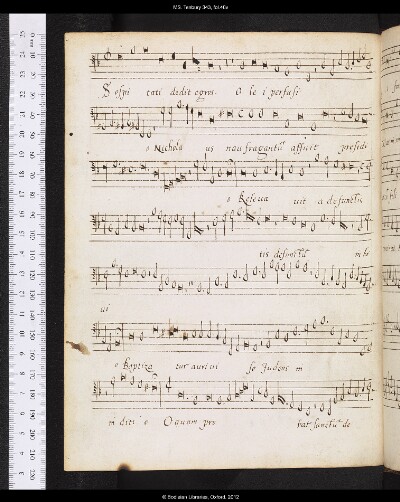 MS. Tenbury 343, fol.40v
Sospi tati dedit egros. O le i perfusi
o Nichola us nau fragantū affuit presidi
o Releua uit a defunctis
tis defunctū in bi
ui
o Baptiza tur auri ui so Judeus in
o O quam pro bat sanctū de
© Bodleian Libraries, Oxford, 2012